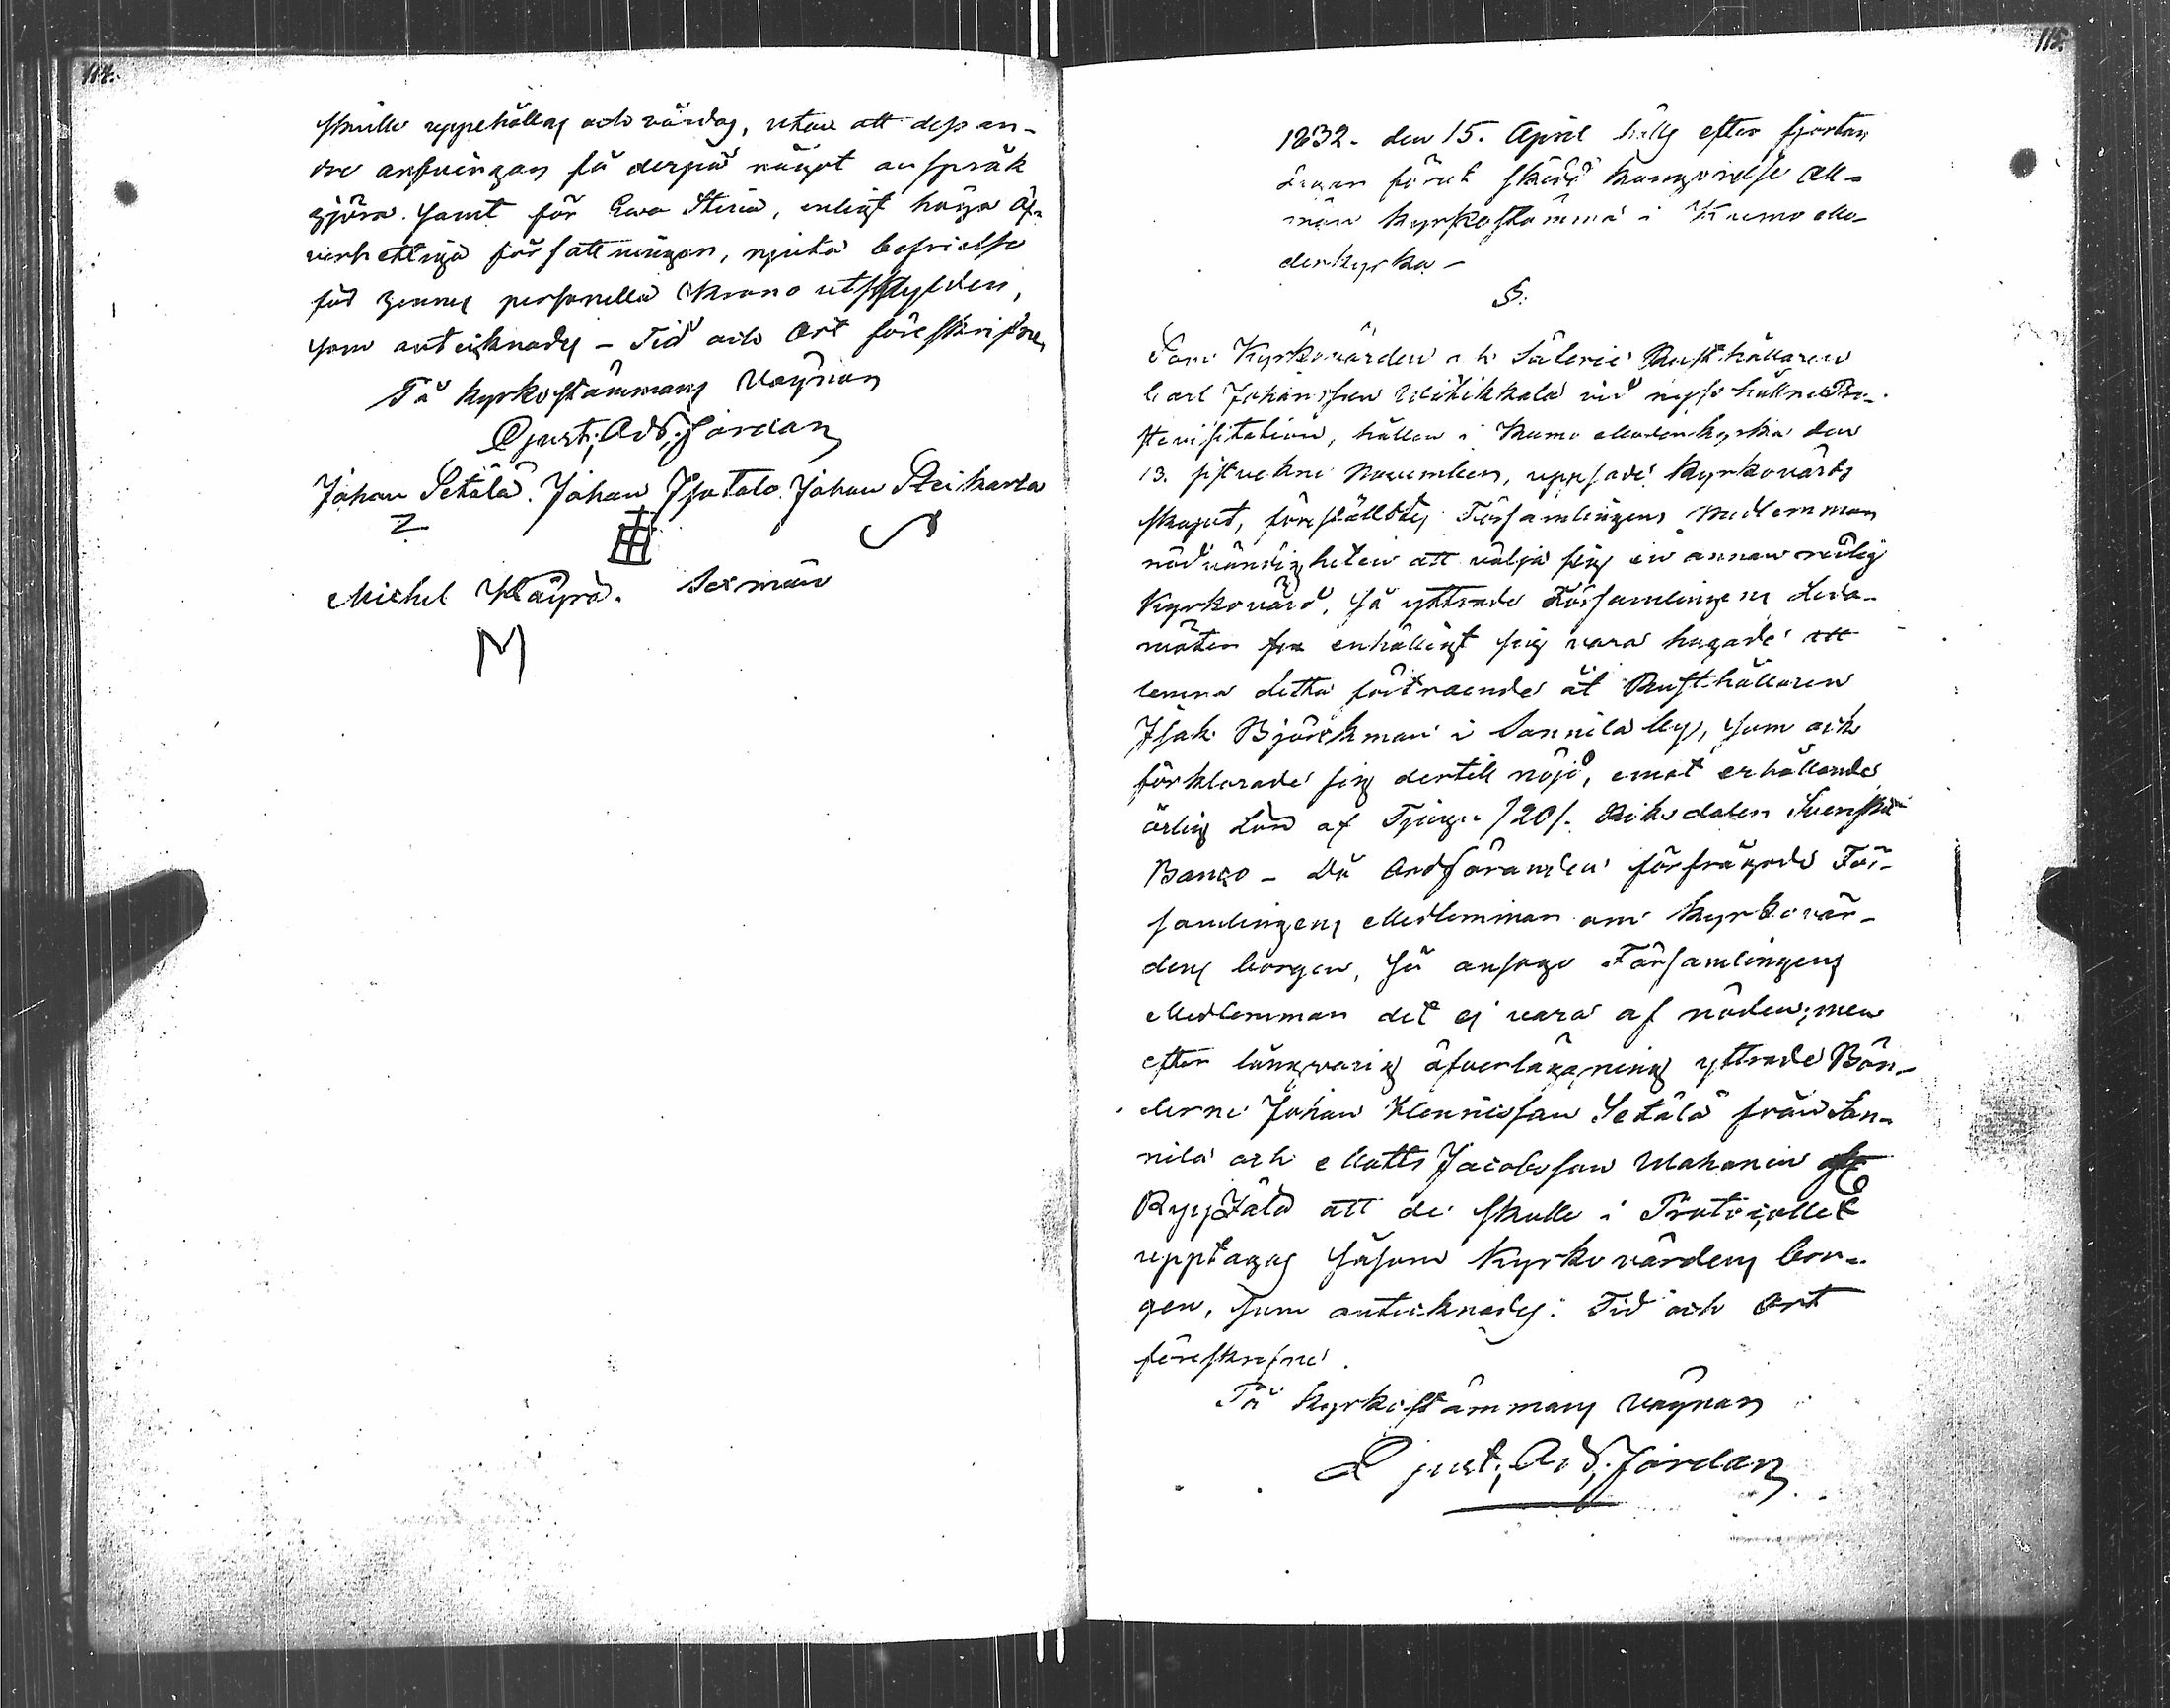 114.
skulle uppehållas och vårdas, utan att dess an-
dre arfvingar få derpå något anspråk
gjöra. Samt för Ewa Stina, enligt höga Öf-
verhetliga författningar, njuta befrielse
för hennes personella Krono utskylder,
som antecknades – Tid och Ort föreskrifne,
På Kyrkostämmans vägnar
Gust; Ad; Jordan
Johan Setälä. Johan Isotalo Johan
Michel Käyrä. Sexmän
M
115.
1832. den 15. April hölls efter fjorton
dagar förut skedd kungörelse All-
män Kyrkostämma i Kumo Mo-
derkyrka –
§.
Som Kyrkovärden och Säterie Rusthållaren
Carl Johansson Witikkala vid nyss hållne Pro-
stevisitation, hållen i Kumo Moderkyrka den
13. sistvekne November, uppsade Kyrkovärds
skapet, föreställdes Församlingens Medlemmar
nödvändigheten att välja sig en annan redlig
Kyrkovärd, Så yttrade Församlingens Leda-
möter enhälligt sig vara hugade att
lemna detta förtroende åt Rusthållaren
Isak Björckman i Sonnila by, som ock
förklarade sig dertill nöjd, emot erhållande
årlig Lön af Tjugu /20/. Riksdaler Svenska
Banco – Då Ordföranden förfrågade För-
samlingens Medlemmar om Kyrkovär-
dens borgen, Så ansågo Församlingens
Medlemmar det ej vara af nöden; men
efter långvarig öfverläggning yttrade Bön-
derne Johan Henricsson Setälä från Son-
nila och Matts Jacobsson Mahonen
att de skulle i Protocollet
upptagas såsom Kyrkovärdens bor-
gen, som antecknades. Tid och Ort
föreskrefne.
På Kyrkostämmans vägnar
Gust; Ad; Jordan